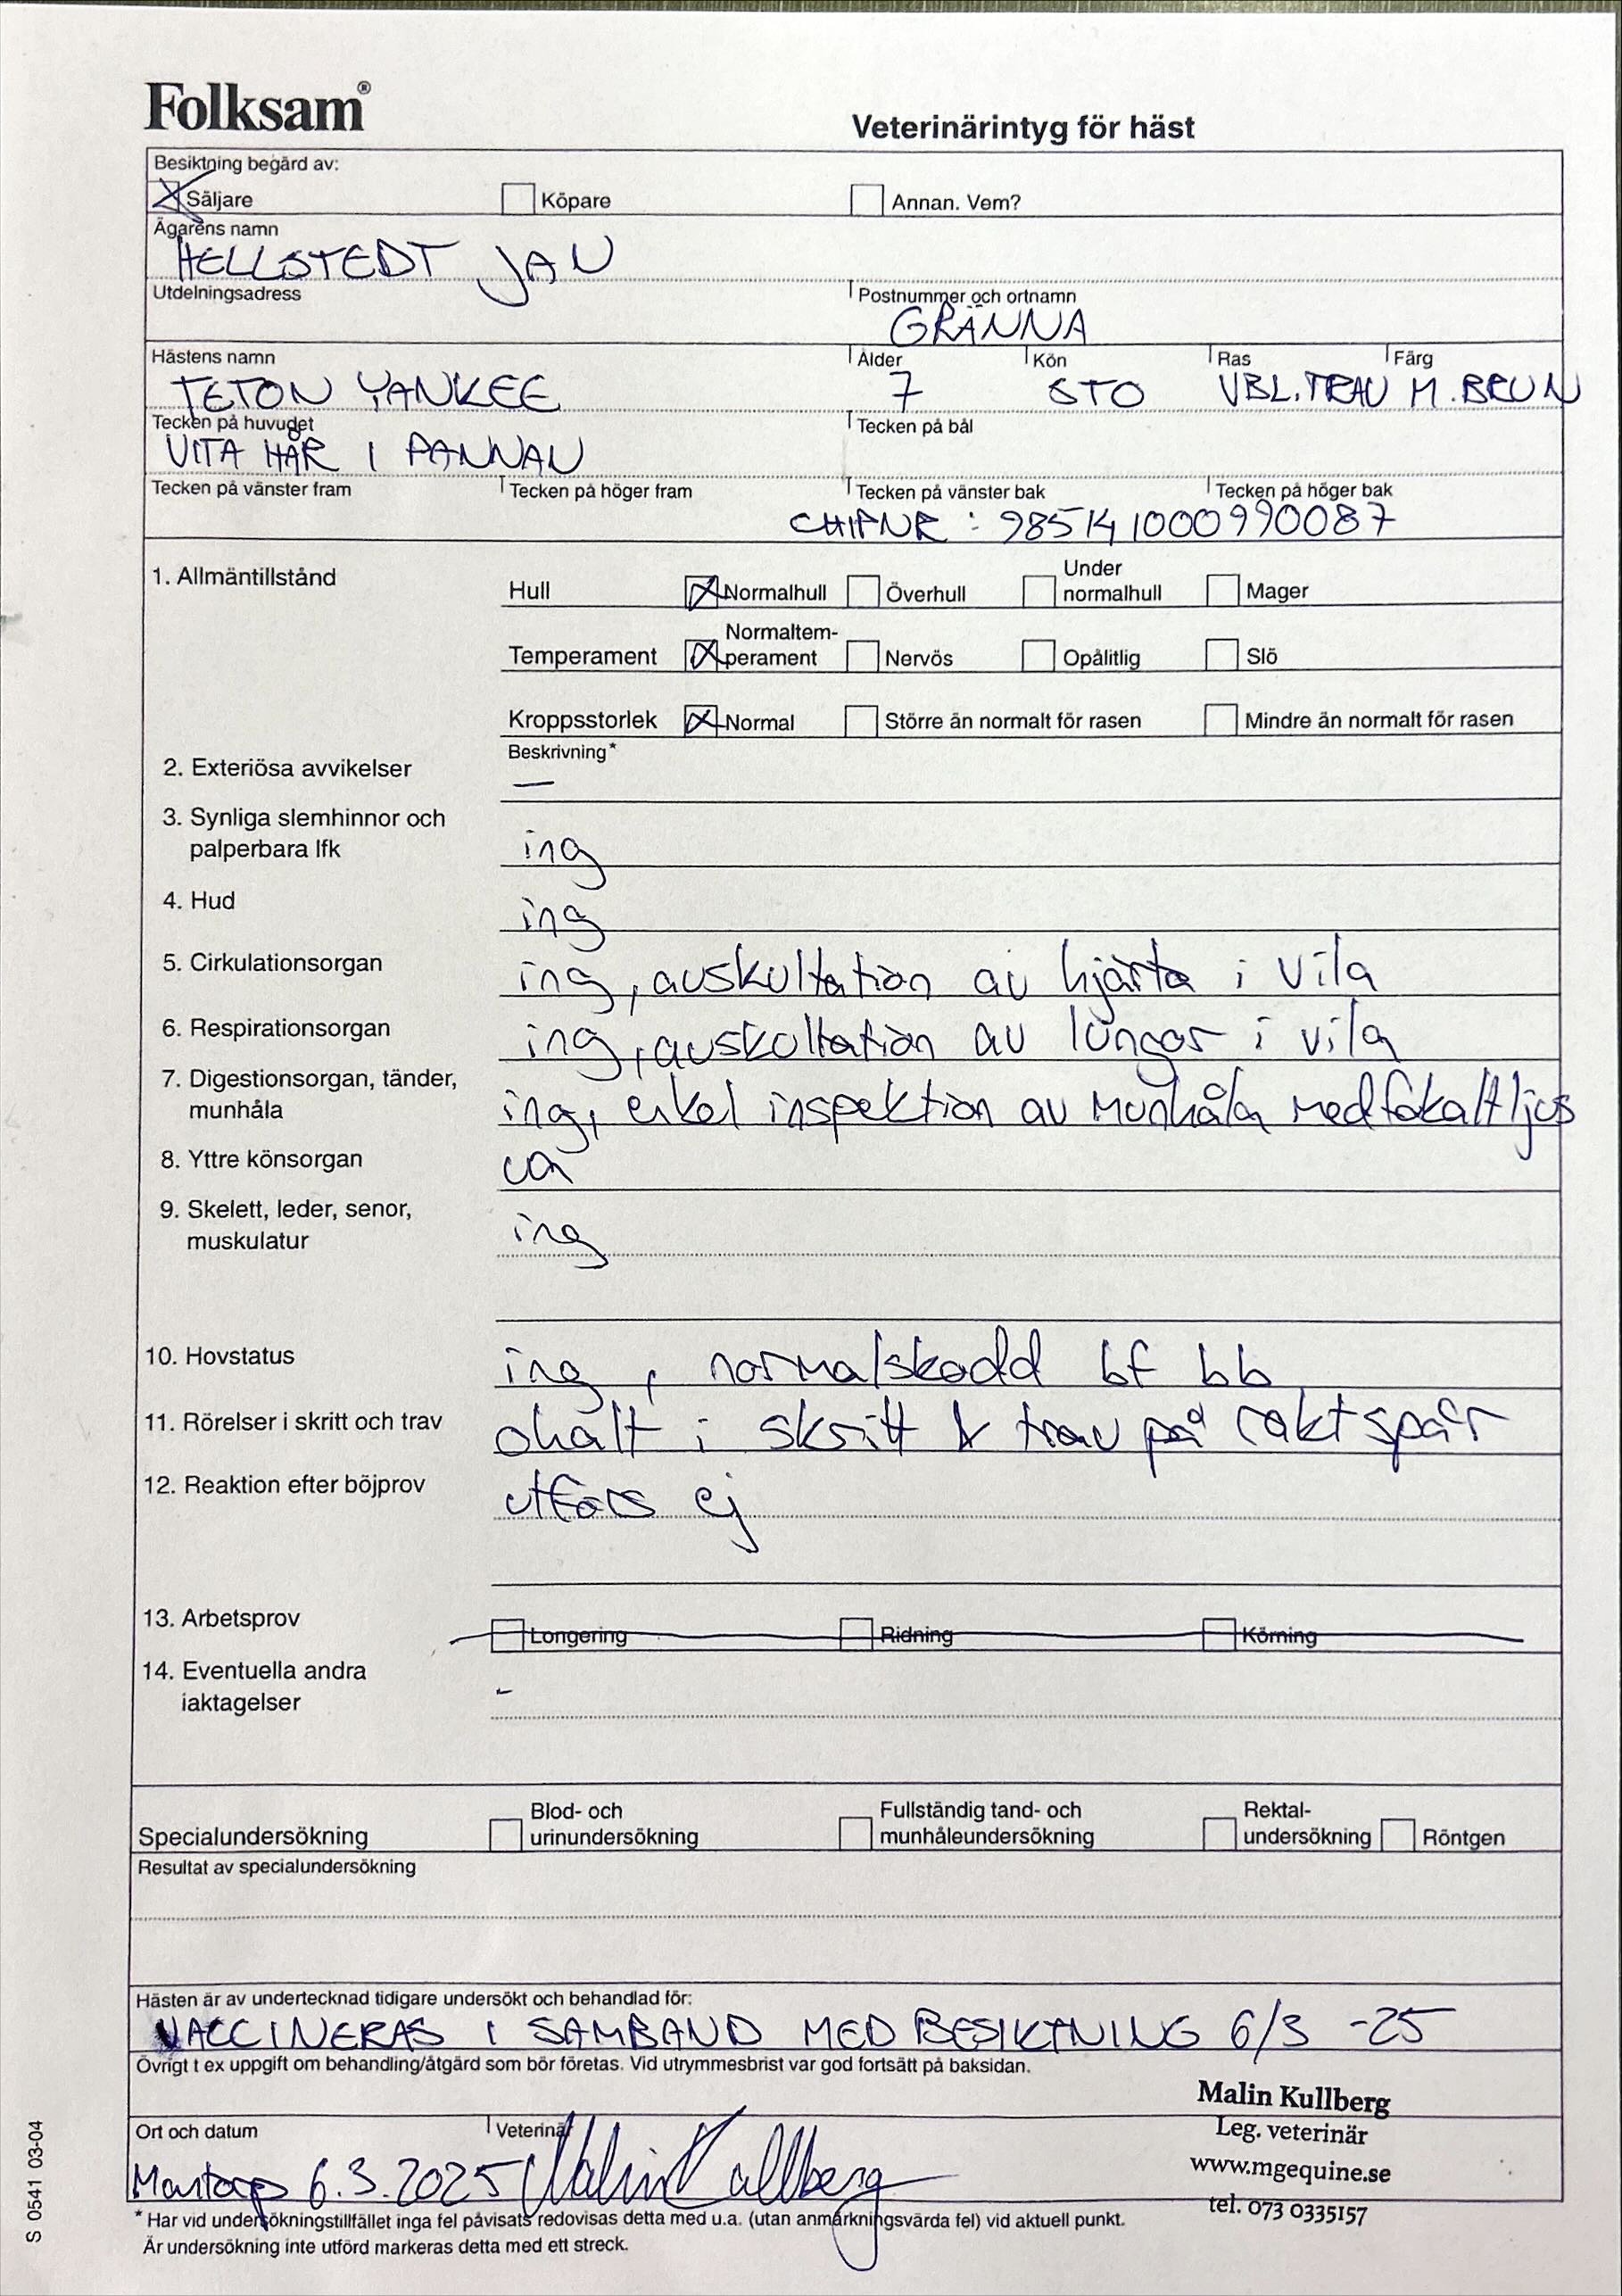 Folksam®
Veterinärintyg för häst
Besiktning begärd av:
Säljare Köpare Annan. Vem?
Ägarens namn
HELLSTEDT JAN
Utdelningsadress Postnummer och ortnamn
GRÄNNA
Hästens namn Ålder Kön Ras Färg
TETON YANKEE 7 STO VBL.TRAV M.BRUN
Tecken på huvudet Tecken på bål
VITA HÅR I PANNAN
Tecken på vänster fram Tecken på höger fram Tecken på vänster bak Tecken på höger bak
CHIPNR : 985141000990087
1. Allmäntillstånd Hull Normalhull Överhull Under normalhull Mager
Temperament Normaltem-perament Nervös Opålitlig Slö
Kroppsstorlek Normal Större än normalt för rasen Mindre än normalt för rasen
Beskrivning*
2. Exteriösa avvikelser —
3. Synliga slemhinnor och
palperbara lfk ing
4. Hud ing
5. Cirkulationsorgan ing, auskultation av hjärta i vila
6. Respirationsorgan ing, auskultation av lungor i vila
7. Digestionsorgan, tänder,
munhåla ing, enkel inspektion av munhåla med fokalt ljus
8. Yttre könsorgan ua
9. Skelett, leder, senor,
muskulatur ing
10. Hovstatus ing, normalskodd bf bb
11. Rörelser i skritt och trav ohalt i skritt & trav på rakt spår
12. Reaktion efter böjprov utförs ej
13. Arbetsprov Longering Ridning Körning
14. Eventuella andra
iaktagelser -
Specialundersökning Blod- och urinundersökning Fullständig tand- och munhåleundersökning Rektal-undersökning Röntgen
Resultat av specialundersökning
Hästen är av undertecknad tidigare undersökt och behandlad för:
VACCINERAS I SAMBAND MED BESIKTNING 6/3 -25
Övrigt t ex uppgift om behandling/åtgärd som bör företas. Vid utrymmesbrist var god fortsätt på baksidan.
Malin Kullberg
Leg. veterinär
www.mgequine.se
tel. 073 0335157
Ort och datum Veterinär
Mantorp 6.3.2025 Malin Kullberg
* Har vid undersökningstillfället inga fel påvisats redovisas detta med u.a. (utan anmärkningsvärda fel) vid aktuell punkt.
Är undersökning inte utförd markeras detta med ett streck.
S 0541 03-04